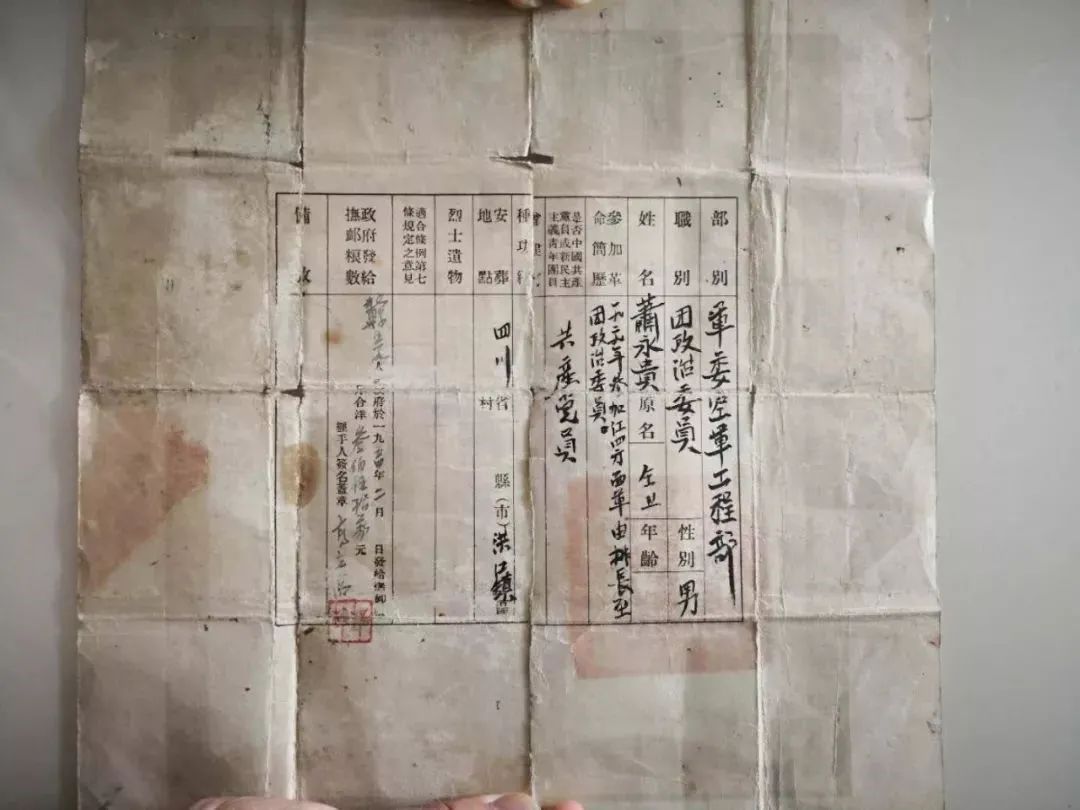 部別 軍委空軍工程部
職別 团政治委員 性別 男
姓名 蕭永貴 原名 年齡
參加革命簡歷 一九三三年参加江四方面軍由排長至
团政治委員。
是否中國共產黨員或新民主主義青年團員 共産党員
種功
安葬地點 四川省 縣(市)洪口鎮 村
烈士遺物
適合條例第七條規定之意見
政府發給撫卹糧數 府於一九五四年二月 日發給撫卹
元
經手人簽名蓋章
備攷